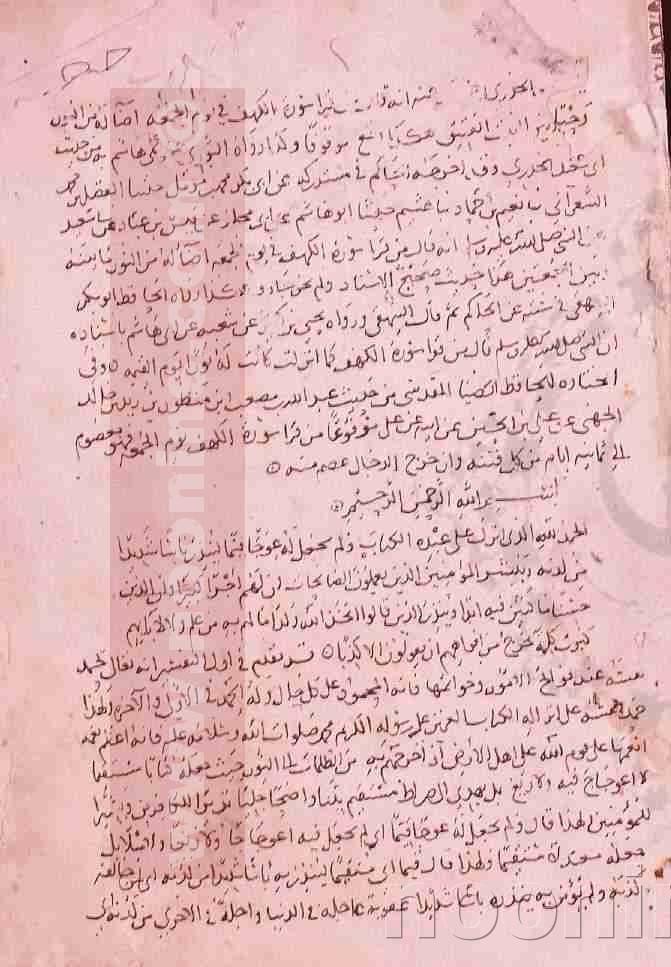 الخدري انه قال من قرا سورة الكهف في يوم الجمعة اضآ له من النور
وبين البيت العتيق هكذا وقع موقوفا وكذا رواه الثوري عن ابي هاشم به من حديث
ابي سعيد الخدري وقد اخرجه الحاكم في مستدركه عن ابي بكر محمد بن المؤمل حدثنا الفضيل بن محمد
الشعراني نا نعيم بن حماد نا هشيم حدثنا ابو هاشم عن ابي مجلز عن قيس بن عباد عن ابي سعيد
عن النبي صلى الله عليه وسلم انه قال من قرا سورة الكهف في يوم الجمعة اضآ له من النور ما بينه
وبين الجمعتين هذا حديث صحيح الاسناد ولم يخرجاه وهكذا رواه الحافظ ابو بكر
البيهقي في سننه عن الحاكم ثم قال البيهقي ورواه يحيى بن كثير عن شعبة عن ابي هاشم باسناده
ان النبي صلى الله عليه وسلم قال من قرا سورة الكهف كما انزلت كانت له نورا يوم القيمة وفي
المختاره للحافظ الضيا المقدسي من حديث عبد الله بن مصعب ابن منظور بن زيد بن خالد
الجهني عن علي بن الحسين عن ابيه عن علي مرفوعا من قرا سورة الكهف يوم الجمعة فهو معصوم
الى ثمانيه ايام من كل فتنة وان خرج الدجال عصم منه
بسم الله الرحمن الرحيم
الحمد لله الذي انزل على عبده الكتاب ولم يجعل له عوجا قيما لينذر باسا شديدا
من لدنه ويبشر المؤمنين الذين يعملون الصالحات ان لهم اجرا
حسنا ماكثين فيه ابدا وينذر الذين قالوا اتخذ الله ولدا ما لهم به من علم ولا لابائهم
كبرت كلمة تخرج من افواههم ان يقولون الا كذبا قد تقدم في اول التفسير انه تعالى يحمد
نفسه عند فواتح الامور وخواتمها فانه المحمود على كل حال وله الحمد في الاولى والآخرة ولهذا
حمد نفسه على انزاله الكتاب العزيز على رسوله الكريم محمد صلوات الله وسلامه عليه فانه اعظم نعمة
انعمها على اهل الارض اذ اخرجهم به من الظلمات الى النور حيث جعله كتابا مستقيما
لا اعوجاج فيه ولا زيغ بل يهدي الى صراط مستقيم بينا واضحا جليا نذيرا للكافرين وبشيرا
للمؤمنين ولهذا قال ولم يجعل له عوجا قيما اي لم يجعل فيه اعوجاجا ولا زيغا ولا ميلا بل
جعله معتدلا مستقيما ولهذا قال قيما اي مستقيما لينذر به باسا شديدا من لدنه اي لمن خالفه
وكذبه ولم يؤمن به ينذره باسا شديدا عقوبة عاجله في الدنيا واجلة في الاخرى من لدنه اي